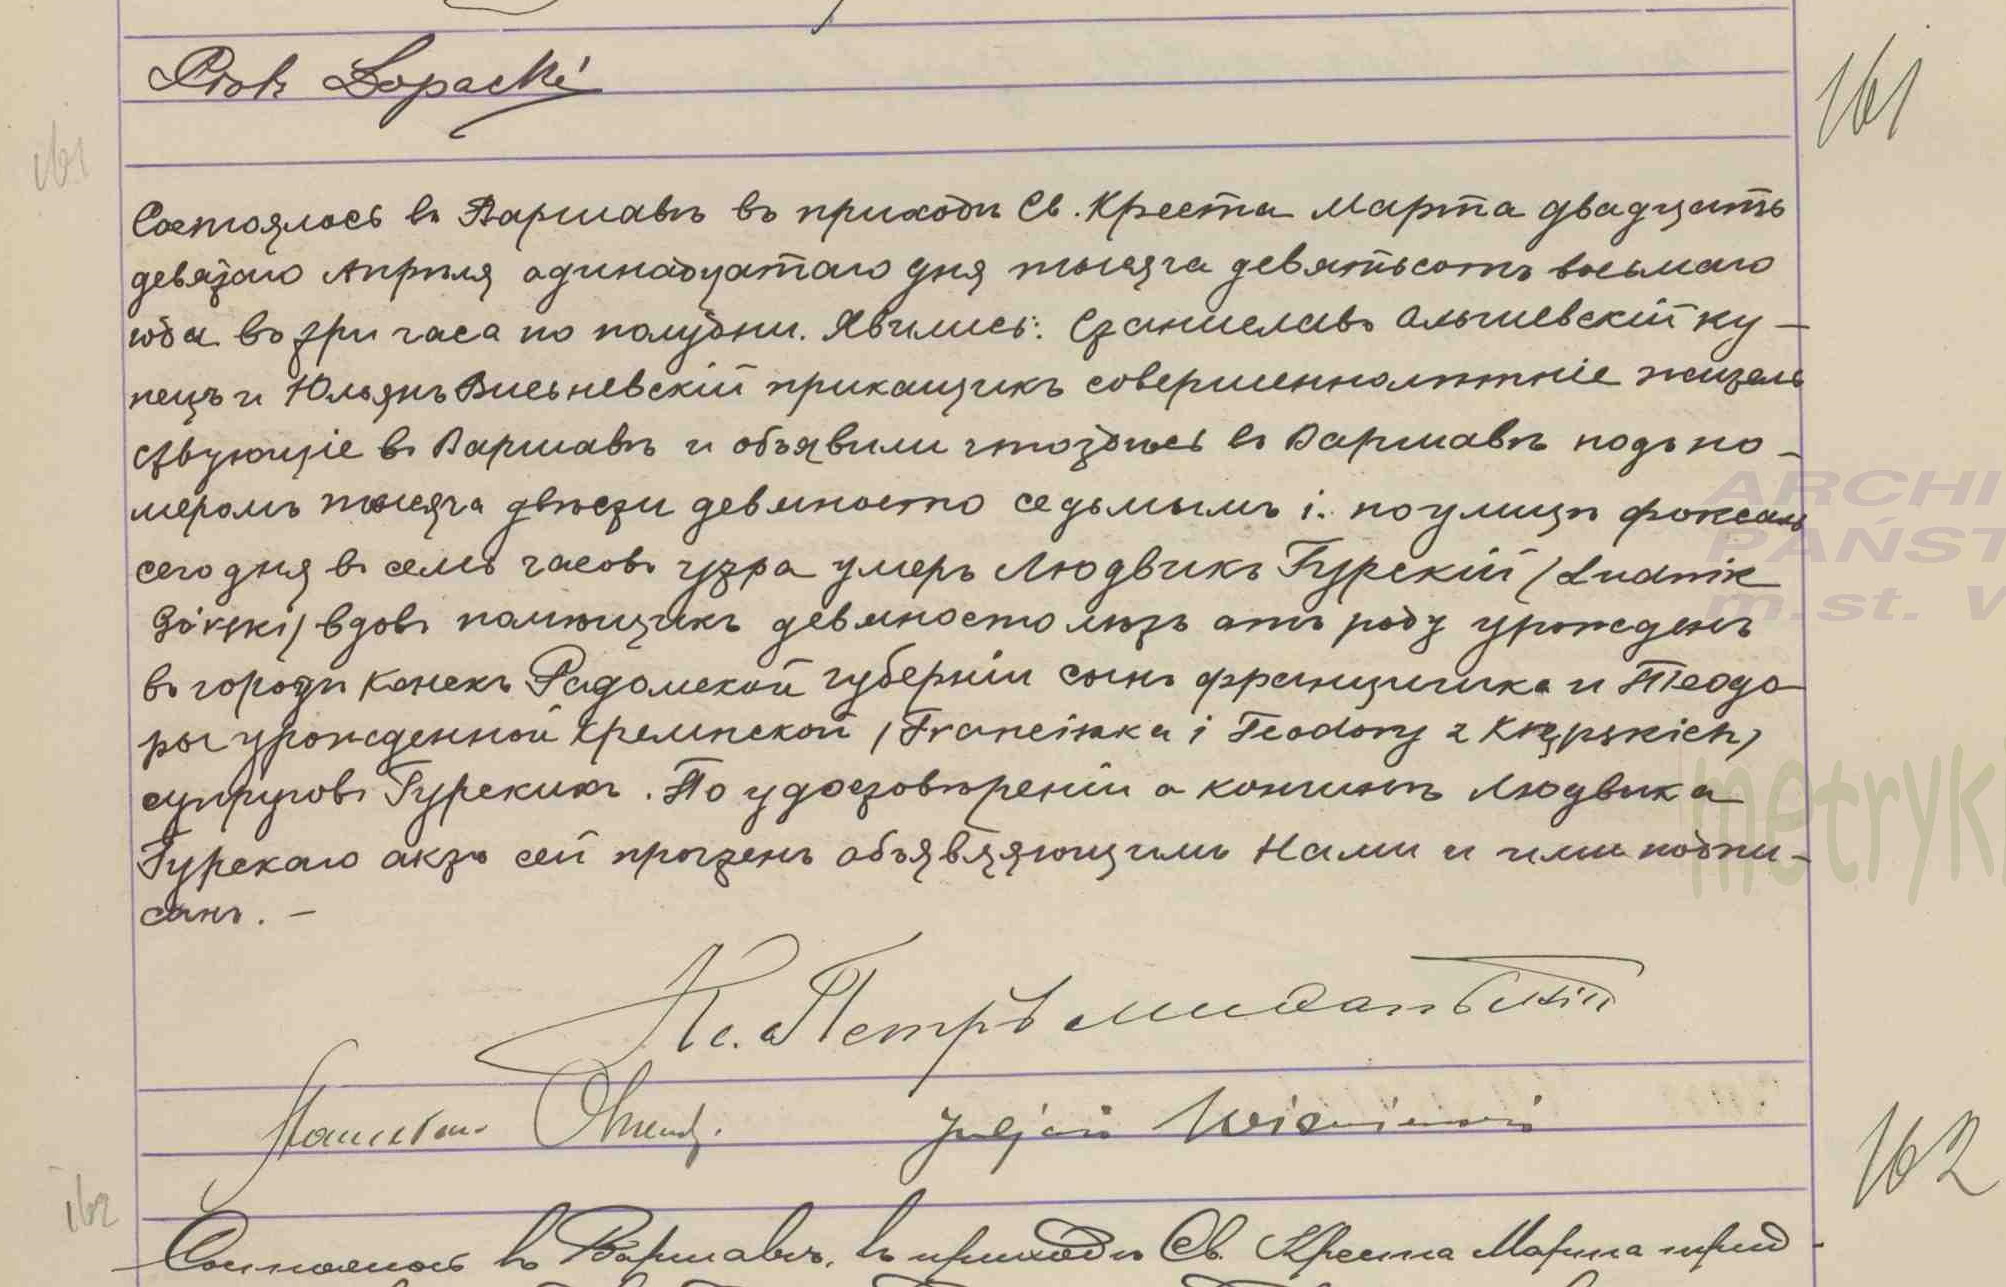 Piotr Łopacki
161
161
Состоялось въ Варшавѣ въ приходѣ Св. Креста Марта двадцать
девятаго Апрѣля одинадцатаго дня тысяча девятьсотъ восьмаго
года въ три часа по полудни. Явились: Станиславъ Ольшевскій ку-
пецъ и Юльянъ Висьневскій прикащикъ совершеннолѣтніе житель
ствующіе въ Варшавѣ и объявили что здѣсь въ Варшавѣ подъ но-
меромъ тысяча двѣсти девяносто седьмымъ i. по улицѣ Фоксаль
сего дня въ семь часовъ утра умеръ Людвикъ Гурскій /Ludwik
Górski/ вдовъ помѣщикъ девяносто лѣтъ отъ роду урожденъ
въ городѣ Конскъ Радомской губерніи сынъ Францишка и Теодо-
ры урожденной Кремпской /Franciszka i Teodory z Krępskich/
супруговъ Гурскихъ. По удостовѣреніи о кончинѣ Людвика
Гурскаго актъ сей прочтенъ объявляющимъ Нами и ими подпи-
санъ. —
Кс. Петръ
Stanisław
Juljan Wiśniewski
162
162
Состоялось въ Варшавѣ, въ приходѣ Св. Креста Марта трид
ARCHI
PAŃST
m.st. W
metryk